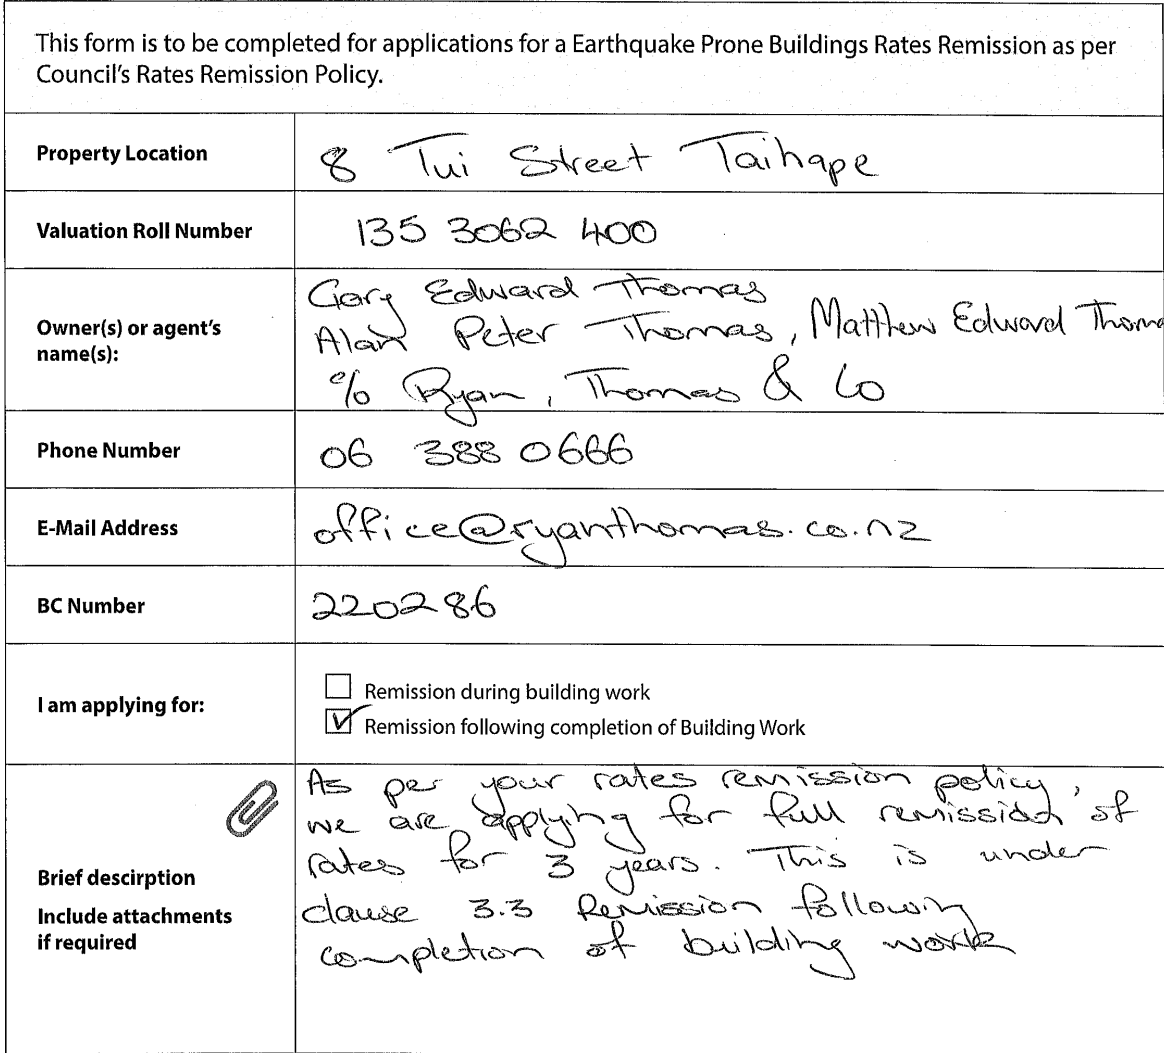 This form is to be completed for applications for a Earthquake Prone Buildings Rates Remission as per
Council's Rates Remission Policy.
Property Location
8 Tui Street Taihape
Valuation Roll Number
135 3062 400
Owner(s) or agent's
name(s):
Gary Edward Thomas
Alan Peter Thomas, Matthew Edward Thoma
c/o Ryan, Thomas & Co
Phone Number
06 388 0666
E-Mail Address
office@ryanthomas.co.nz
BC Number
220286
I am applying for:
Remission during building work
Remission following completion of Building Work
Brief descirption
Include attachments
if required
As per your rates remission policy,
we are applying for full remission of
rates for 3 years. This is under
clause 3.3 Remission following
completion of building work